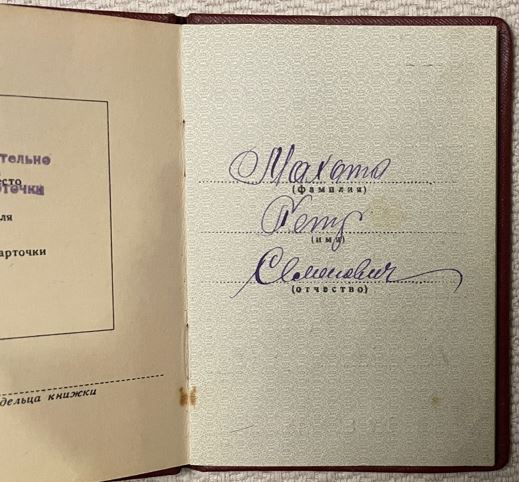 тельно
есто
рточки
ля
арточки
дельца книжки
Махота
(фамилия)
Петр
(имя)
Семенович
(отчество)